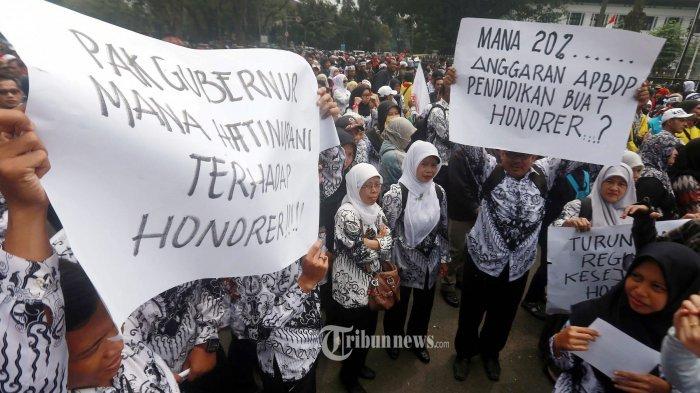 PAK GUBERNUR
MANA HATI NURANI
TERHADAP
HONORER!!!!
MANA 20%......
ANGGARAN APBDP
PENDIDIKAN BUAT
HONORER...?
TURUN
REG
KESEJ
Tribunnews.com